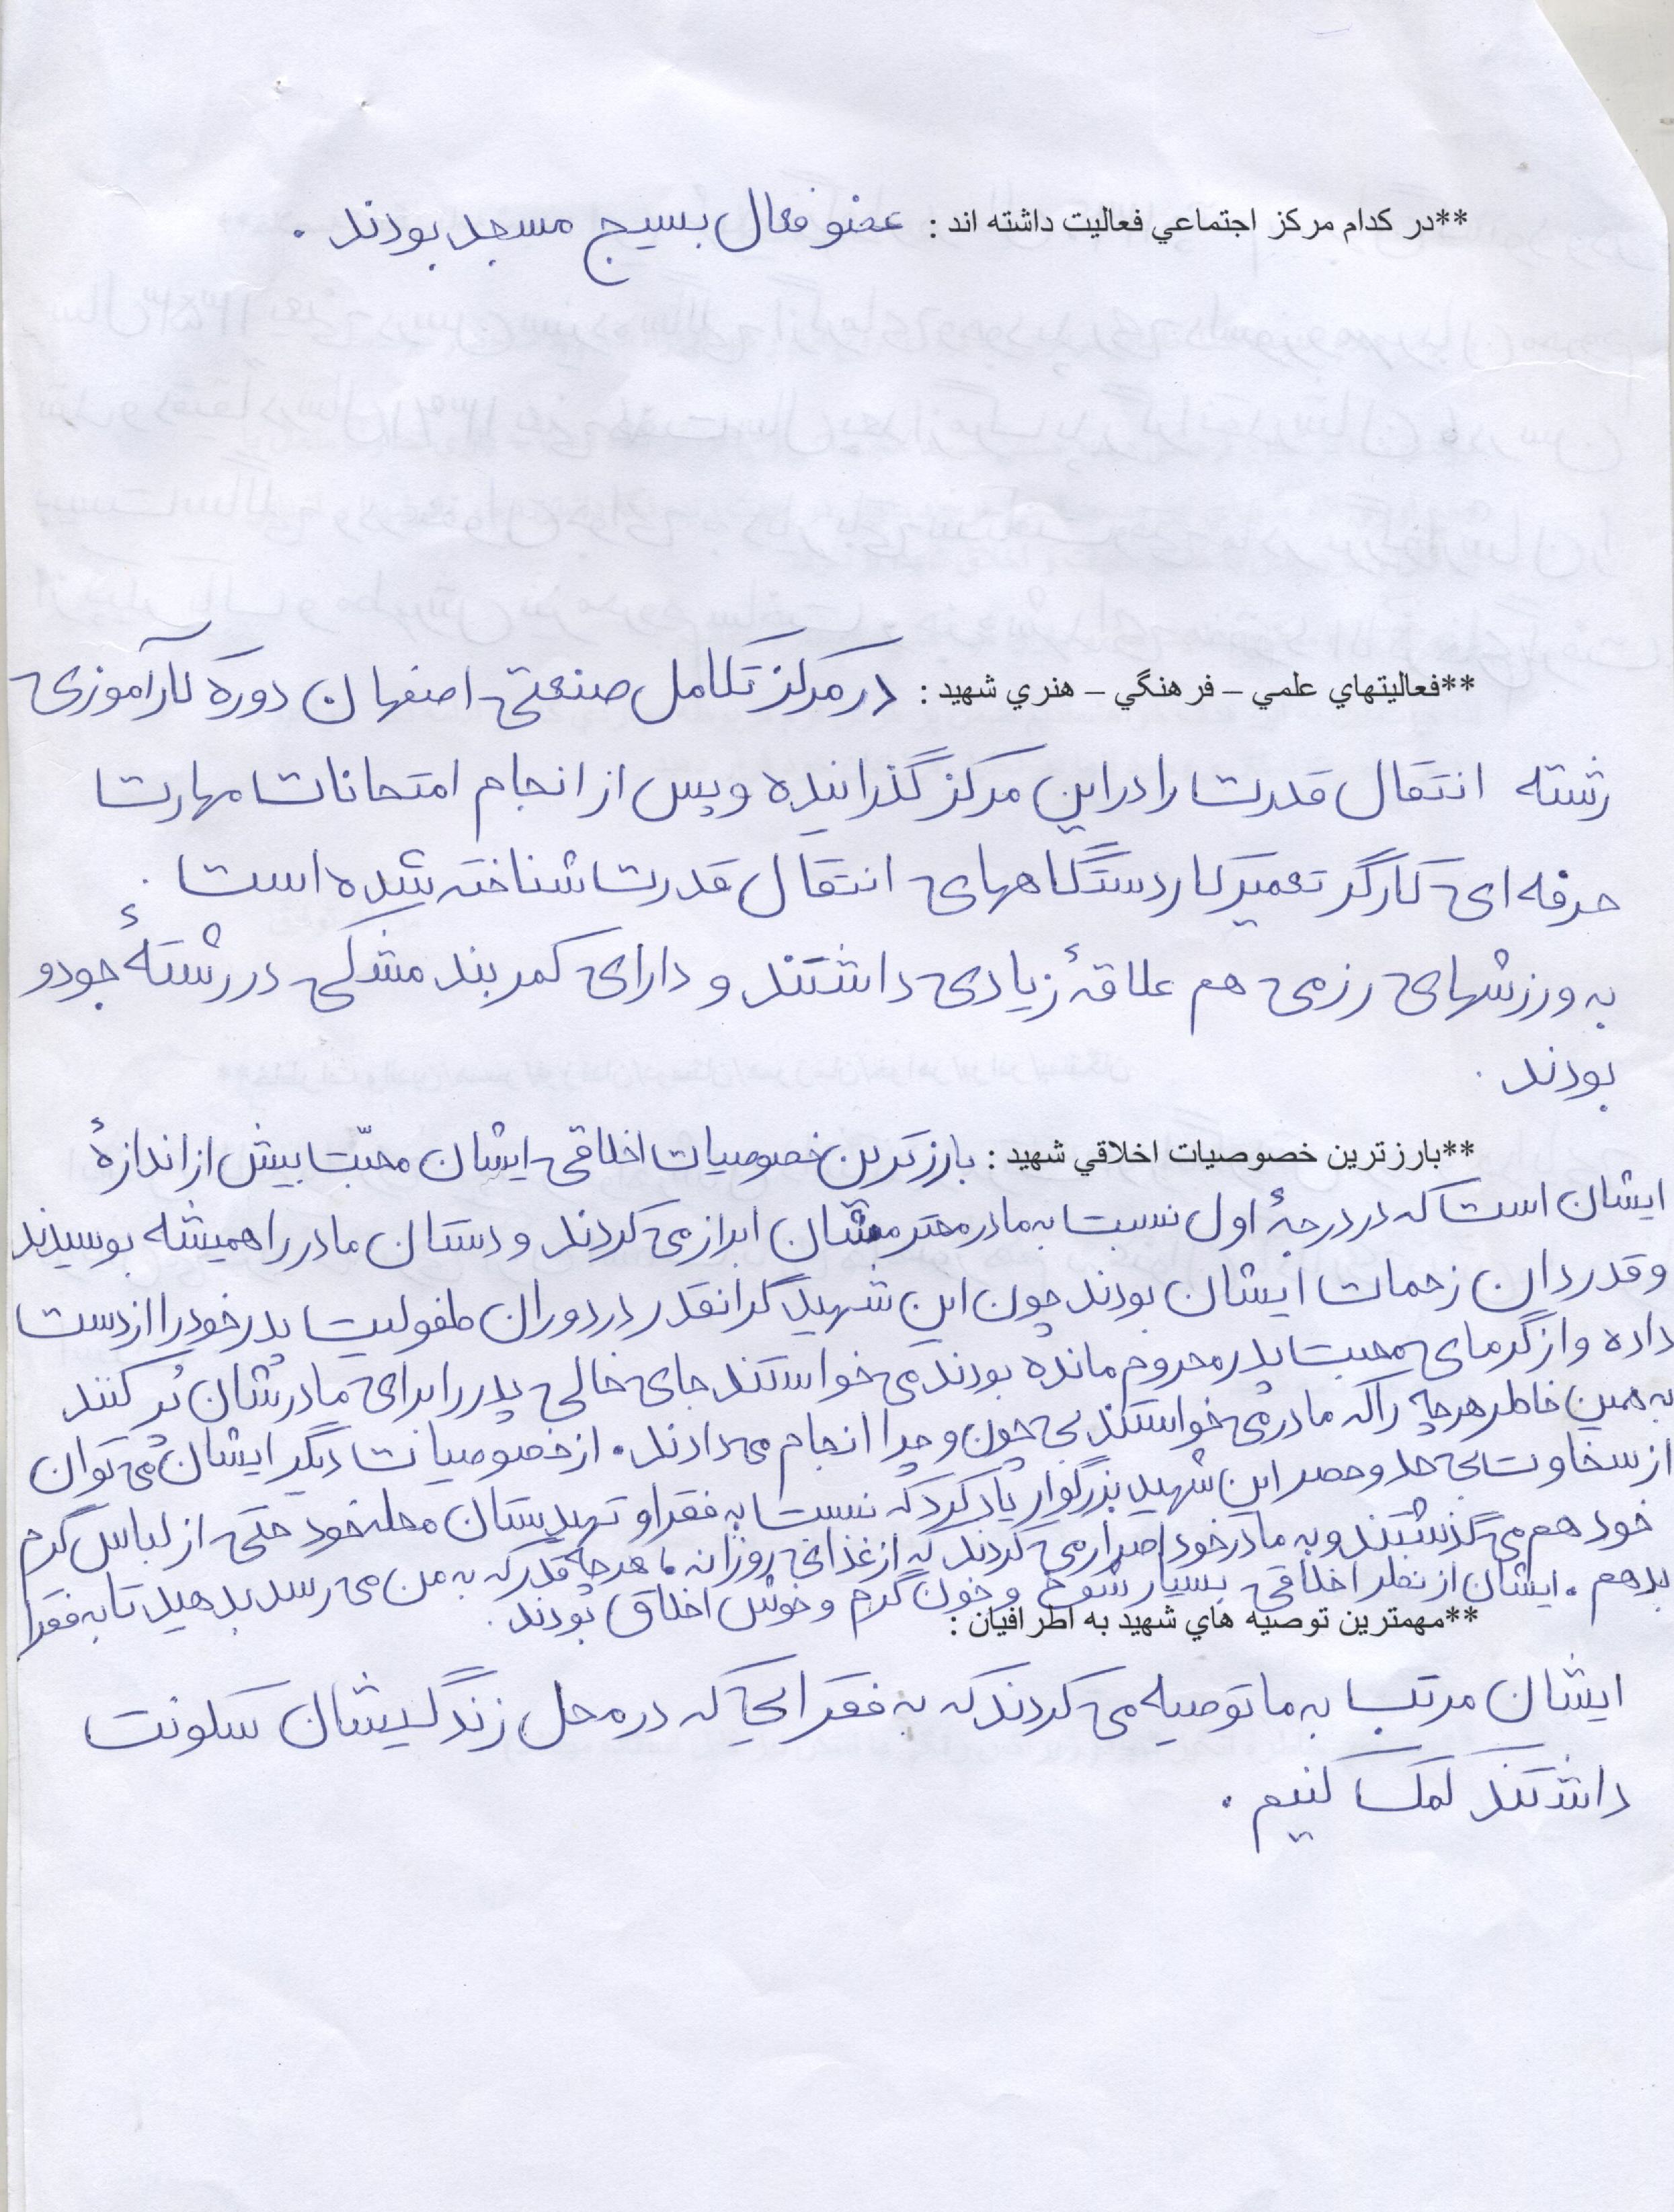 **در كدام مركز اجتماعي فعاليت داشته اند : عضو فعال بسیج مسجد بودند .
**فعاليتهاي علمي – فرهنگي – هنري شهيد : در مرکز تکامل صنعتی اصفهان دوره کارآموزی
رشته انتقال قدرت را در این مرکز گذرانیده و پس از انجام امتحانات مهارت
حرفه ای کارگر تعمیرکار دستگاههای انتقال قدرت شناخته شده است .
به ورزشهای رزمی هم علاقهٔ زیادی داشتند و دارای کمربند مشکی در رشتهٔ جودو
بودند .
**بارزترين خصوصيات اخلاقي شهيد : بارزترین خصوصیات اخلاقی ایشان محبّت بیش از اندازهٔ
ایشان است که در درجهٔ اول نسبت به مادر محترمشان ابراز می کردند و دستان مادر را همیشه بوسیدند
و قدردان زحمات ایشان بودند چون این شهید گرانقدر در دوران طفولیت پدر خود را از دست
داده و از گرمای محبت پدر محروم مانده بودند می خواستند جای خالی پدر را برای مادرشان پُر کنند
به همین خاطر هرچه را که مادر می خواستند بی چون و چرا انجام می دادند . از خصوصیات دیگر ایشان می توان
از سخاوت بی حد و حصر این شهید بزرگوار یاد کرد که نسبت به فقرا و تهیدستان محله خود حتی از لباس گرم
خود هم می گذشتند و به مادر خود اصرار می کردند که از غذای روزانه ، هرچه قدر که به من می رسد بدهید تا به فقرا
بدهم . ایشان از نظر اخلاقی بسیار شوخ و خون گرم و خوش اخلاق بودند .
**مهمترين توصيه هاي شهيد به اطرافيان :
ایشان مرتب به ما توصیه می کردند که به فقرایی که در محل زندگیشان سکونت
داشتند کمک کنیم .